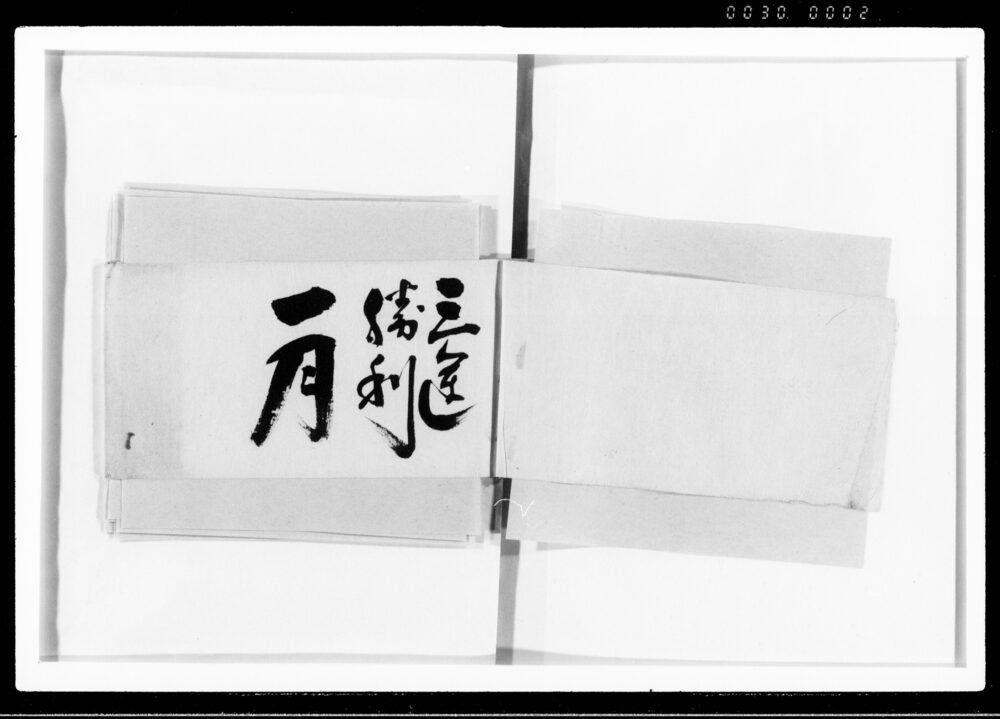 0030 0002
三途
勝利
一月